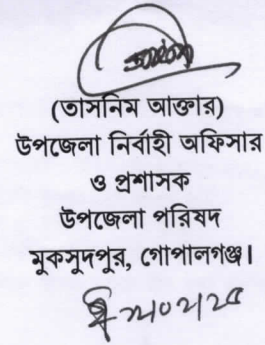 (তাসনিম আক্তার)
উপজেলা নির্বাহী অফিসার
ও প্রশাসক
উপজেলা পরিষদ
মুকসুদপুর, গোপালগঞ্জ।